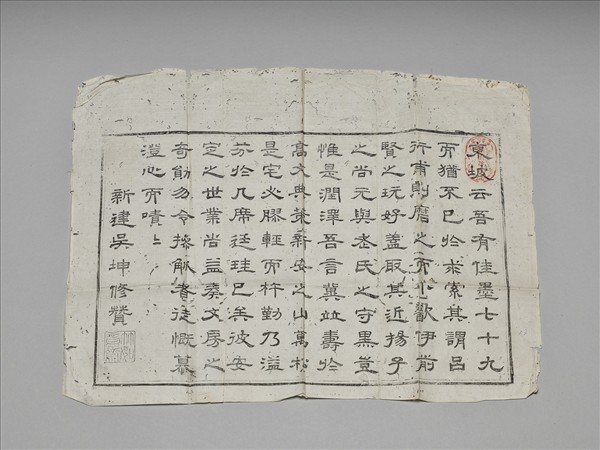 東坡云吾有佳墨七十九
而猶不已於求索其謂呂
行甫則磨之而小歠伊前
賢之玩好蓋取其近揚子
之尚元與老氏之守黑豈
惟是潤澤吾言冀竝壽於
高文典策新安之山萬松
是宅火膠輕而杵勤乃溢
芬於几席廷珪已矣彼安
定之世業尚益奏文房之
奇勛勿令操觚者徒慨慕
澄心而嘖嘖
新建吳坤修贊